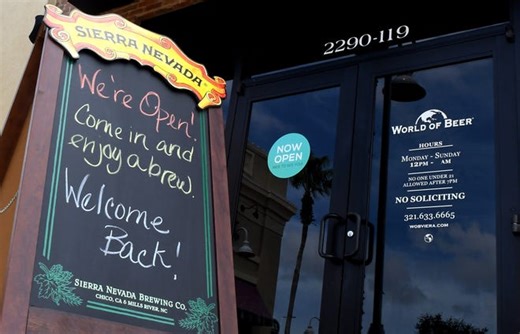 SIERRA NEVADA
We're Open!
Come in and
enjoy a brew.
Welcome
Back!
SIERRA NEVADA BREWING CO.
CHICO, CA & MILLS RIVER, NC
2290-119
NOW
OPEN
WORLD OF BEER
HOURS
MONDAY - SUNDAY
12PM - AM
NO ONE UNDER 21
ALLOWED AFTER 7PM
NO SOLICITING
321.633.6665
WOBVIERA.COM